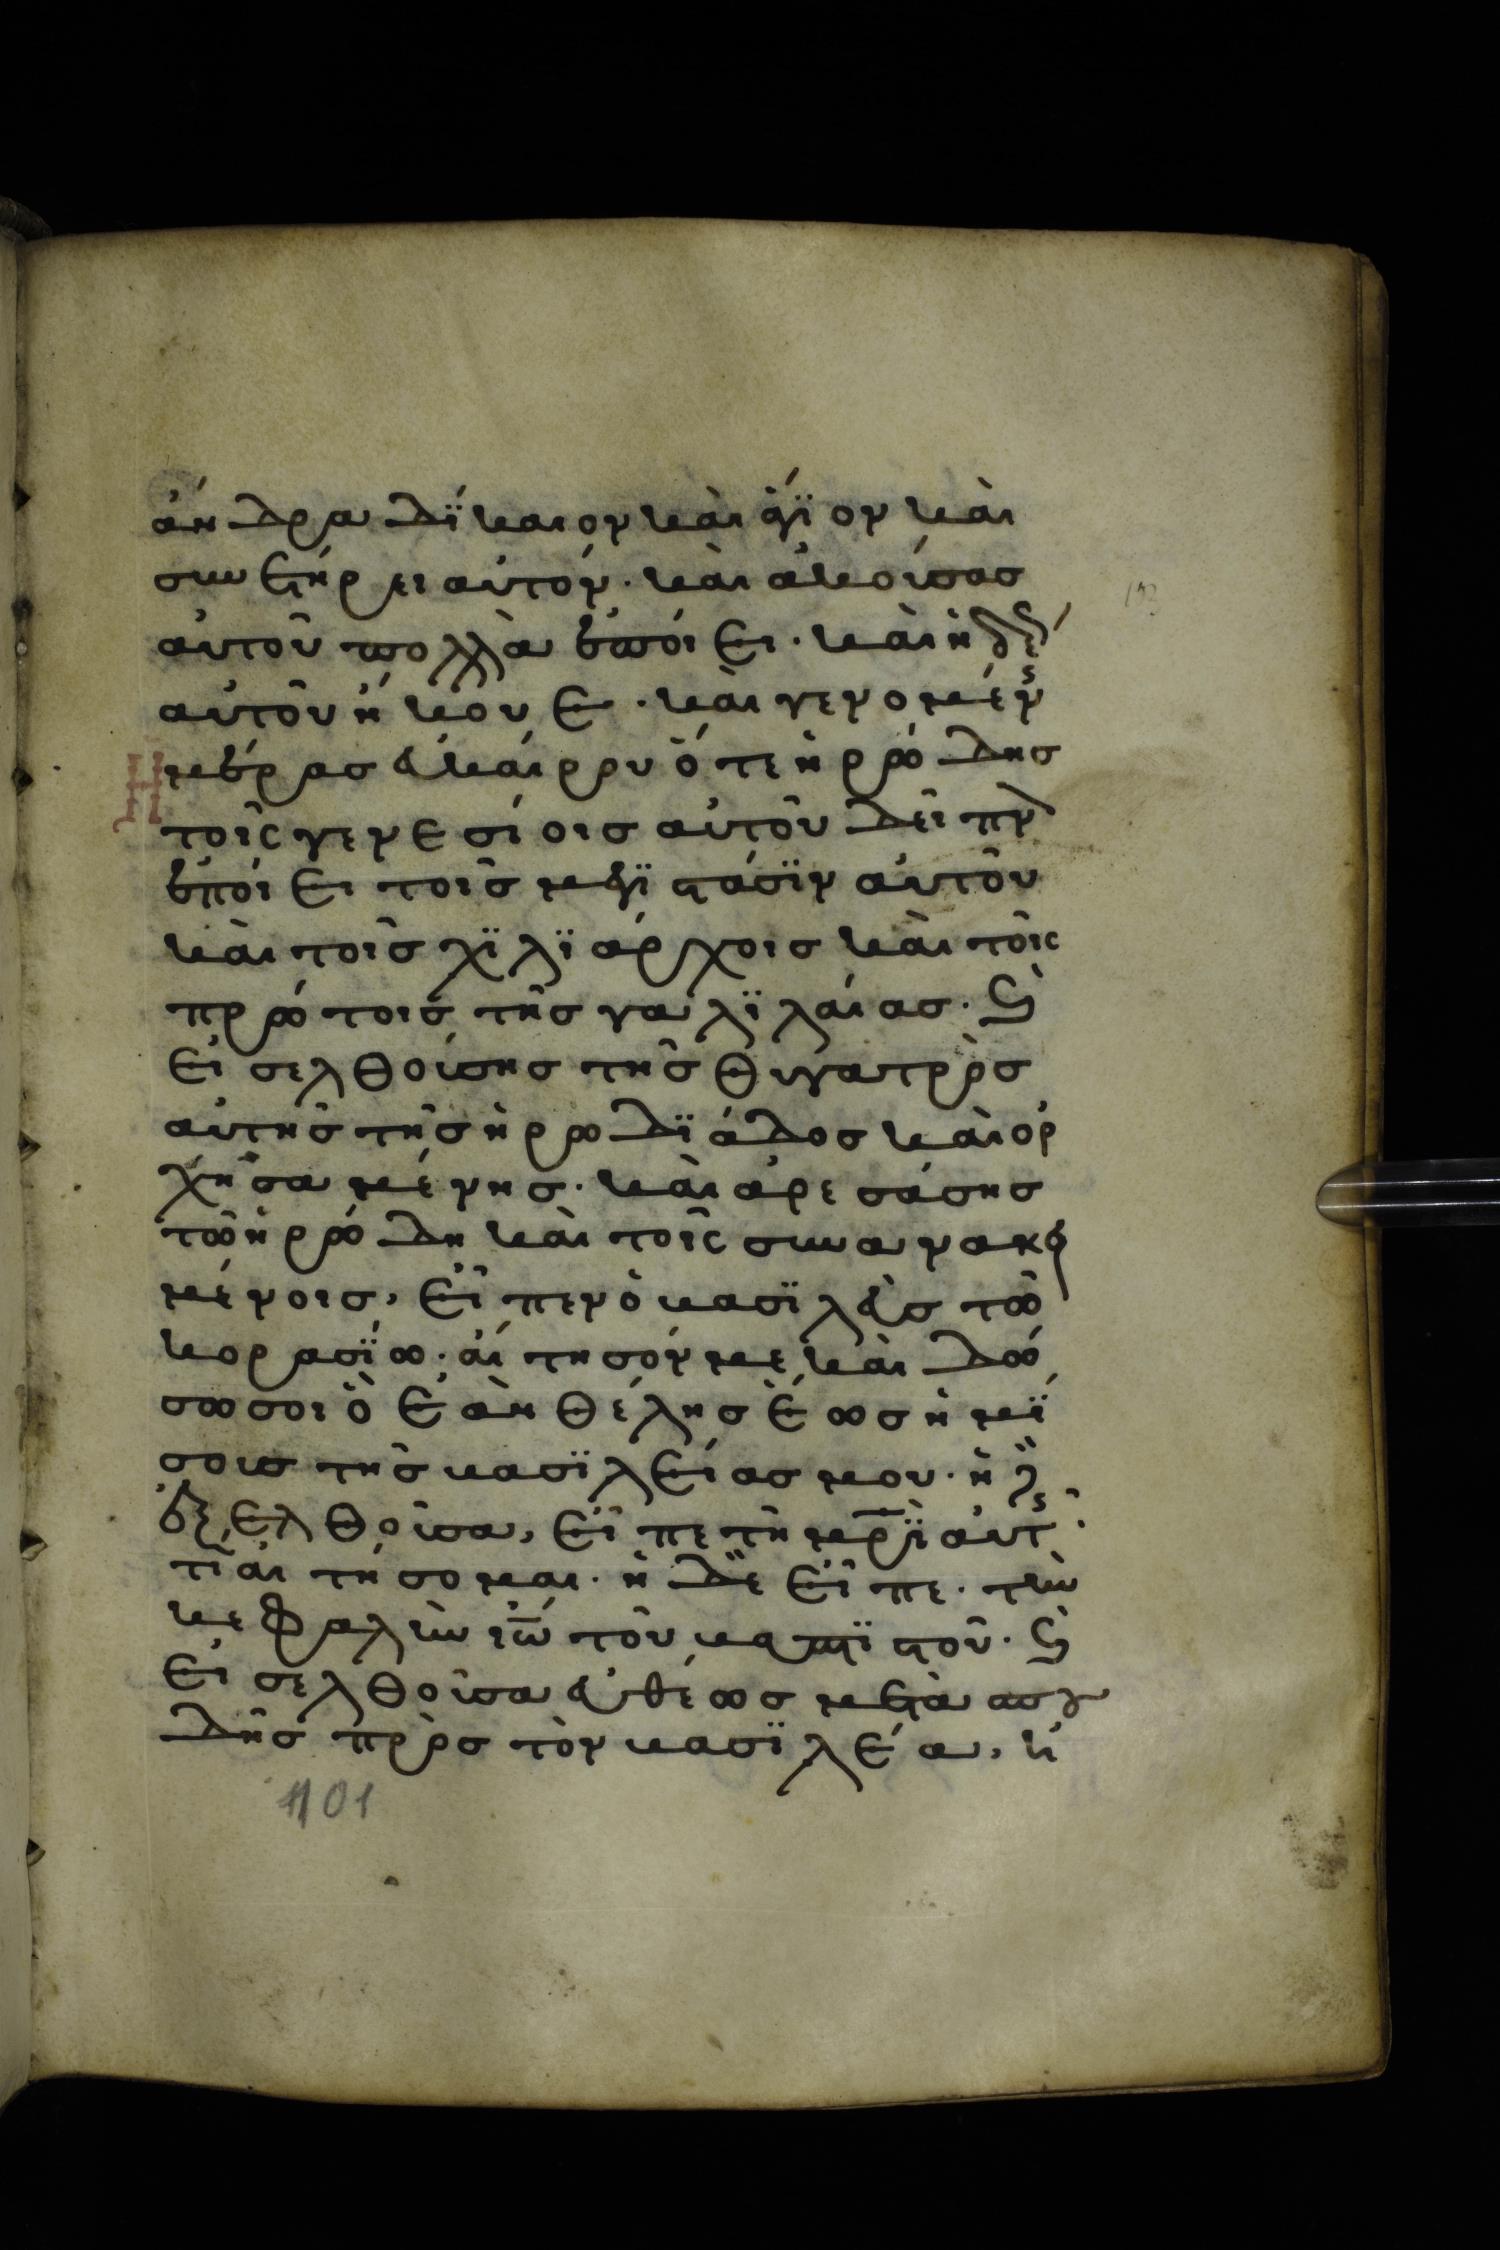 ἄνδρα δίκαιον καὶ ἅγϊον καὶ
συνετήρει αὐτόν· καὶ ἀκούσας
αὐτοῦ πολλὰ ἐποίει· καὶ ἡδέως
αὐτοῦ ἤκουε· καὶ γενομένης
Ημέρας εὐκαίρου ὅτε ἡρώδης
τοῖς γενεσίοις αὐτοῦ δεῖπνον
ἐποίει τοῖς μεγϊστάσϊν αὐτοῦ
καὶ τοῖς χϊλϊάρχοις καὶ τοῖς
πρώτοις τῆς γαλϊλαίας· καὶ
εἰσελθούσης τῆς θυγατρὸς
αὐτῆς τῆς ἡρωδϊάδος καὶ ὀρ
χησαμένης· καὶ ἀρεσάσης
τῶ ἡρώδη καὶ τοῖς συνανακει
μένοις, εἶπεν ὁ βασϊλεὺς τῶ
κορασϊω· αἴτησόν με, καὶ δώ
σω σοι ὃ ἐὰν θέλης ἕως ἡμί
σους τῆς βασϊλείας μου· ἡ δὲ
ἐξελθοῦσα, εἶπε τῆ μρὶ αὐτῆς·
τί αἰτήσομαι· ἡ δὲ εἶπε· τὴν
κεφαλὴν ιῶ τοῦ βαπτϊστοῦ· καὶ
εἰσελθοῦσα εὐθέως μετὰ σπου
δῆς πρὸς τὸν βασϊλέα, ἠ
1101